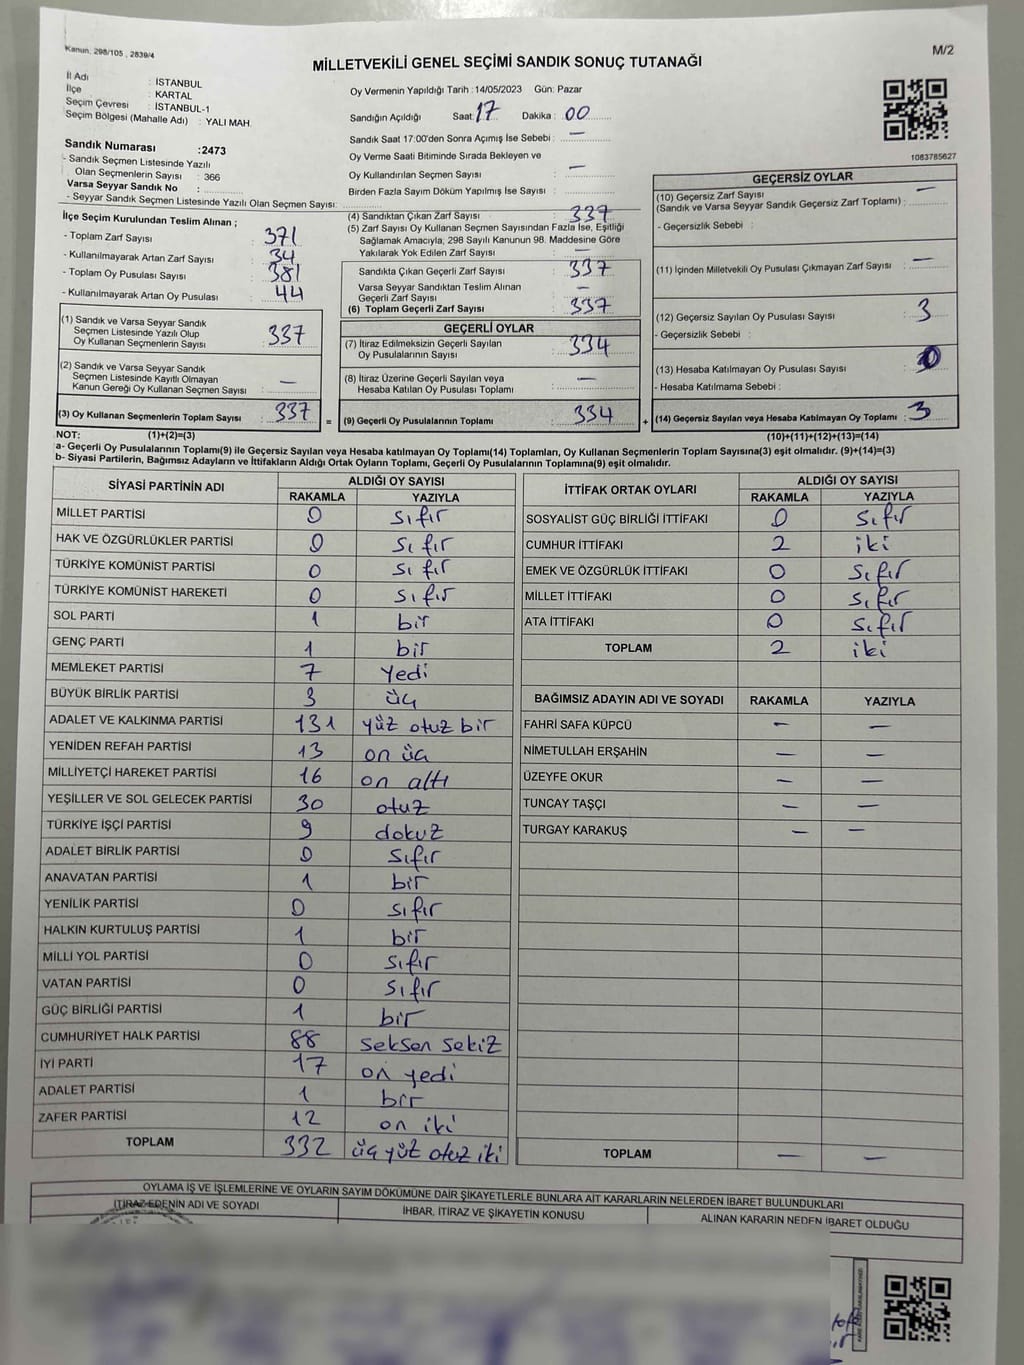 Kanun: 298/105 , 2839/4
M/2
MİLLETVEKİLİ GENEL SEÇİMİ SANDIK SONUÇ TUTANAĞI
İl Adı : İSTANBUL
İlçe : KARTAL
Seçim Çevresi : İSTANBUL-1
Seçim Bölgesi (Mahalle Adı) : YALI MAH.
Sandık Numarası :2473
- Sandık Seçmen Listesinde Yazılı
Olan Seçmenlerin Sayısı : 366
Varsa Seyyar Sandık No :
- Seyyar Sandık Seçmen Listesinde Yazılı Olan Seçmen Sayısı:
Oy Vermenin Yapıldığı Tarih : 14/05/2023 Gün: Pazar
Sandığın Açıldığı Saat: 17 Dakika : 00
Sandık Saat 17:00'den Sonra Açımış İse Sebebi : —
Oy Verme Saati Bitiminde Sırada Bekleyen ve
Oy Kullandırılan Seçmen Sayısı : —
Birden Fazla Sayım Döküm Yapılmış İse Sayısı :
1083785627
İlçe Seçim Kurulundan Teslim Alınan ;
- Toplam Zarf Sayısı : 371
- Kullanılmayarak Artan Zarf Sayısı : 34
- Toplam Oy Pusulası Sayısı : 381
- Kullanılmayarak Artan Oy Pusulası : 44
(1) Sandık ve Varsa Seyyar Sandık
Seçmen Listesinde Yazılı Olup
Oy Kullanan Seçmenlerin Sayısı : 337
(2) Sandık ve Varsa Seyyar Sandık
Seçmen Listesinde Kayıtlı Olmayan
Kanun Gereği Oy Kullanan Seçmen Sayısı : —
(3) Oy Kullanan Seçmenlerin Toplam Sayısı : 337
(4) Sandıktan Çıkan Zarf Sayısı : 337
(5) Zarf Sayısı Oy Kullanan Seçmen Sayısından Fazla İse, Eşitliği
Sağlamak Amacıyla, 298 Sayılı Kanunun 98. Maddesine Göre
Yakılarak Yok Edilen Zarf Sayısı : —
Sandıkta Çıkan Geçerli Zarf Sayısı : 337
Varsa Seyyar Sandıktan Teslim Alınan
Geçerli Zarf Sayısı : —
(6) Toplam Geçerli Zarf Sayısı : 337
GEÇERLİ OYLAR
(7) İtiraz Edilmeksizin Geçerli Sayılan
Oy Pusulalarının Sayısı : 334
(8) İtiraz Üzerine Geçerli Sayılan veya
Hesaba Katılan Oy Pusulası Toplamı : —
= (9) Geçerli Oy Pusulalarının Toplamı : 334
GEÇERSİZ OYLAR
(10) Geçersiz Zarf Sayısı
(Sandık ve Varsa Seyyar Sandık Geçersiz Zarf Toplamı) : —
- Geçersizlik Sebebi :
(11) İçinden Milletvekili Oy Pusulası Çıkmayan Zarf Sayısı : —
(12) Geçersiz Sayılan Oy Pusulası Sayısı : 3
- Geçersizlik Sebebi :
(13) Hesaba Katılmayan Oy Pusulası Sayısı : 0
- Hesaba Katılmama Sebebi :
+ (14) Geçersiz Sayılan veya Hesaba Katılmayan Oy Toplamı : 3
NOT: (1)+(2)=(3) (10)+(11)+(12)+(13)=(14)
a- Geçerli Oy Pusulalarının Toplamı(9) ile Geçersiz Sayılan veya Hesaba katılmayan Oy Toplamı(14) Toplamları, Oy Kullanan Seçmenlerin Toplam Sayısına(3) eşit olmalıdır. (9)+(14)=(3)
b- Siyasi Partilerin, Bağımsız Adayların ve İttifakların Aldığı Ortak Oyların Toplamı, Geçerli Oy Pusulalarının Toplamına(9) eşit olmalıdır.
SİYASİ PARTİNİN ADI ALDIĞI OY SAYISI
RAKAMLA YAZIYLA
MİLLET PARTİSİ 0 sıfır
HAK VE ÖZGÜRLÜKLER PARTİSİ 0 sıfır
TÜRKİYE KOMÜNİST PARTİSİ 0 sıfır
TÜRKİYE KOMÜNİST HAREKETİ 0 sıfır
SOL PARTİ 1 bir
GENÇ PARTİ 1 bir
MEMLEKET PARTİSİ 7 yedi
BÜYÜK BİRLİK PARTİSİ 3 üç
ADALET VE KALKINMA PARTİSİ 131 yüz otuz bir
YENİDEN REFAH PARTİSİ 13 on üç
MİLLİYETÇİ HAREKET PARTİSİ 16 on altı
YEŞİLLER VE SOL GELECEK PARTİSİ 30 otuz
TÜRKİYE İŞÇİ PARTİSİ 9 dokuz
ADALET BİRLİK PARTİSİ 0 sıfır
ANAVATAN PARTİSİ 1 bir
YENİLİK PARTİSİ 0 sıfır
HALKIN KURTULUŞ PARTİSİ 1 bir
MİLLİ YOL PARTİSİ 0 sıfır
VATAN PARTİSİ 0 sıfır
GÜÇ BİRLİĞİ PARTİSİ 1 bir
CUMHURİYET HALK PARTİSİ 88 seksen sekiz
İYİ PARTİ 17 on yedi
ADALET PARTİSİ 1 bir
ZAFER PARTİSİ 12 on iki
TOPLAM 332 üç yüz otuz iki
İTTİFAK ORTAK OYLARI ALDIĞI OY SAYISI
RAKAMLA YAZIYLA
SOSYALİST GÜÇ BİRLİĞİ İTTİFAKI 0 sıfır
CUMHUR İTTİFAKI 2 iki
EMEK VE ÖZGÜRLÜK İTTİFAKI 0 sıfır
MİLLET İTTİFAKI 0 sıfır
ATA İTTİFAKI 0 sıfır
TOPLAM 2 iki
BAĞIMSIZ ADAYIN ADI VE SOYADI RAKAMLA YAZIYLA
FAHRİ SAFA KÜPCÜ — —
NİMETULLAH ERŞAHİN — —
ÜZEYFE OKUR — —
TUNCAY TAŞÇI — —
TURGAY KARAKUŞ — —
TOPLAM — —
OYLAMA İŞ VE İŞLEMLERİNE VE OYLARIN SAYIM DÖKÜMÜNE DAİR ŞİKAYETLERLE BUNLARA AİT KARARLARIN NELERDEN İBARET BULUNDUKLARI
İTİRAZ EDENİN ADI VE SOYADI İHBAR, İTİRAZ VE ŞİKAYETİN KONUSU ALINAN KARARIN NEDEN İBARET OLDUĞU